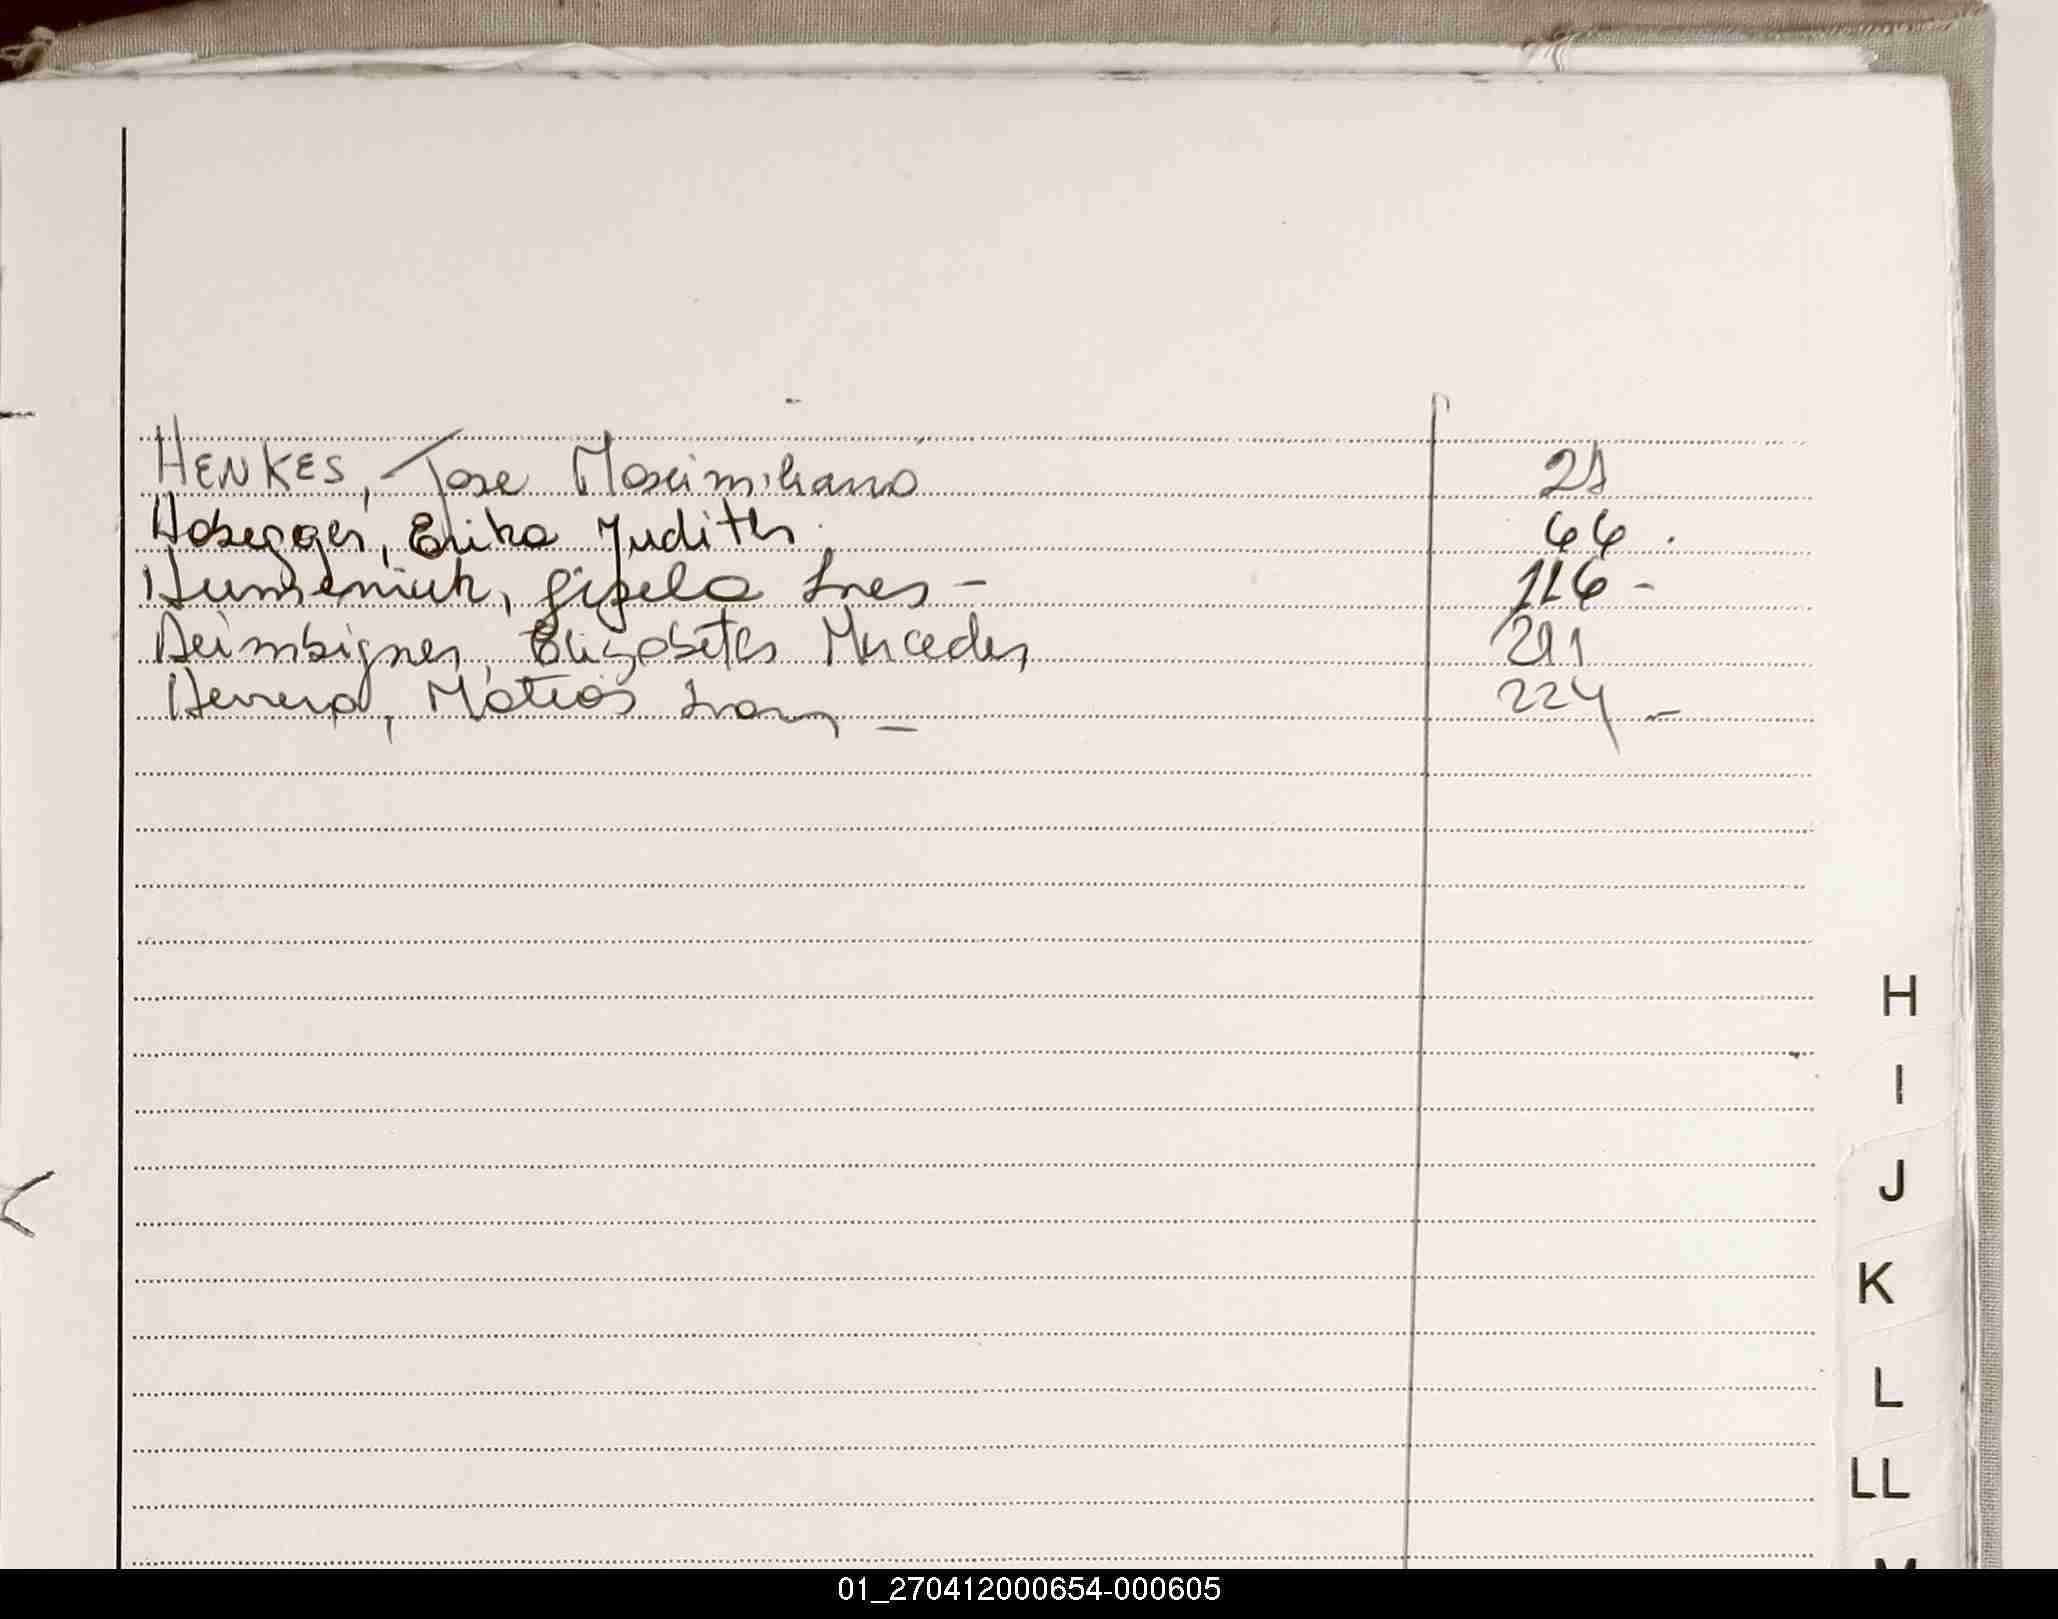 HENKES, Jose Maximiliano 21
Habegger, Erika Judith. 66.
Humeniuk, Gisela Ines - 116-
Heimbigner, Elizabeth Mercedes 211
Herrera, Matias Ivan - 224-
H
I
J
K
L
LL
M
01_270412000654-000605